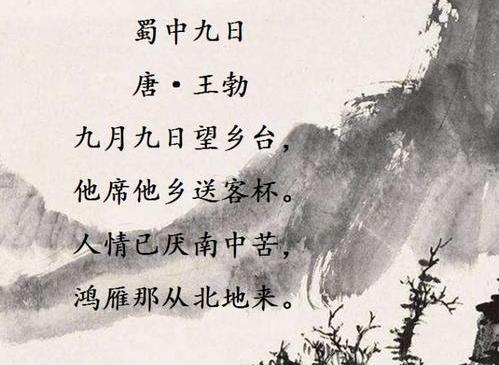 蜀中九日
唐·王勃
九月九日望乡台，
他席他乡送客杯。
人情已厌南中苦，
鸿雁那从北地来。